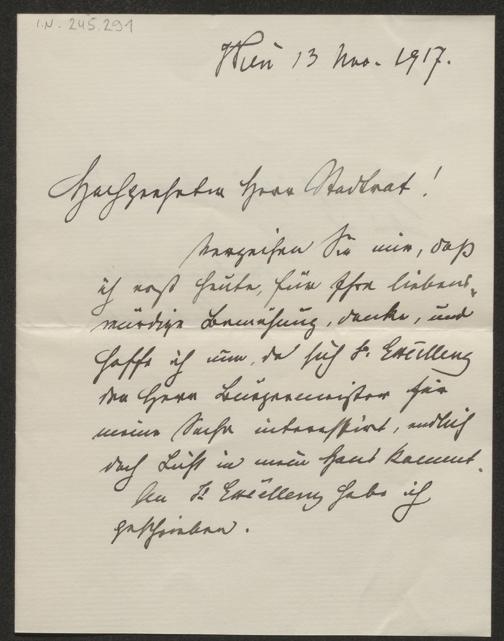 I.N. 245.291
Wien 13 Nov. 1917.
Hochgeehrter Herr Stadtrat!
Verzeihen Sie mir, daß
ich erst heute, für Ihre liebens-
würdige Bemühung, danke, und
hoffe ich nun, da sich Sr Exzellenz
der Herr Bürgermeister für
meine Sache interessirt, endlich
doch Licht in mein Haus kommt.
An Sr Exzellenz habe ich
geschrieben.